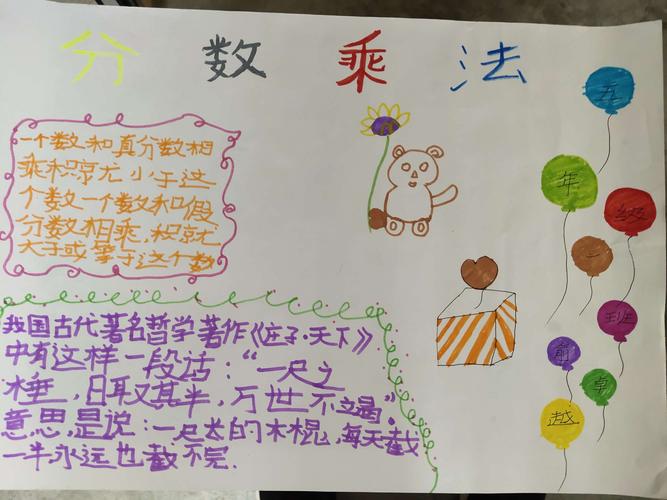 分数乘法
一个数和真分数相
乘积就小于这
个数一个数和假
分数相乘，积就
大于或等于这个数
我国古代著名哲学著作《庄子·天下》
中有这样一段话：“一尺之
棰，日取其半，万世不竭”。
意思是说：一尺长的木棍，每天截
一半永远也截不完.
五
年
级
二
班
卓
越